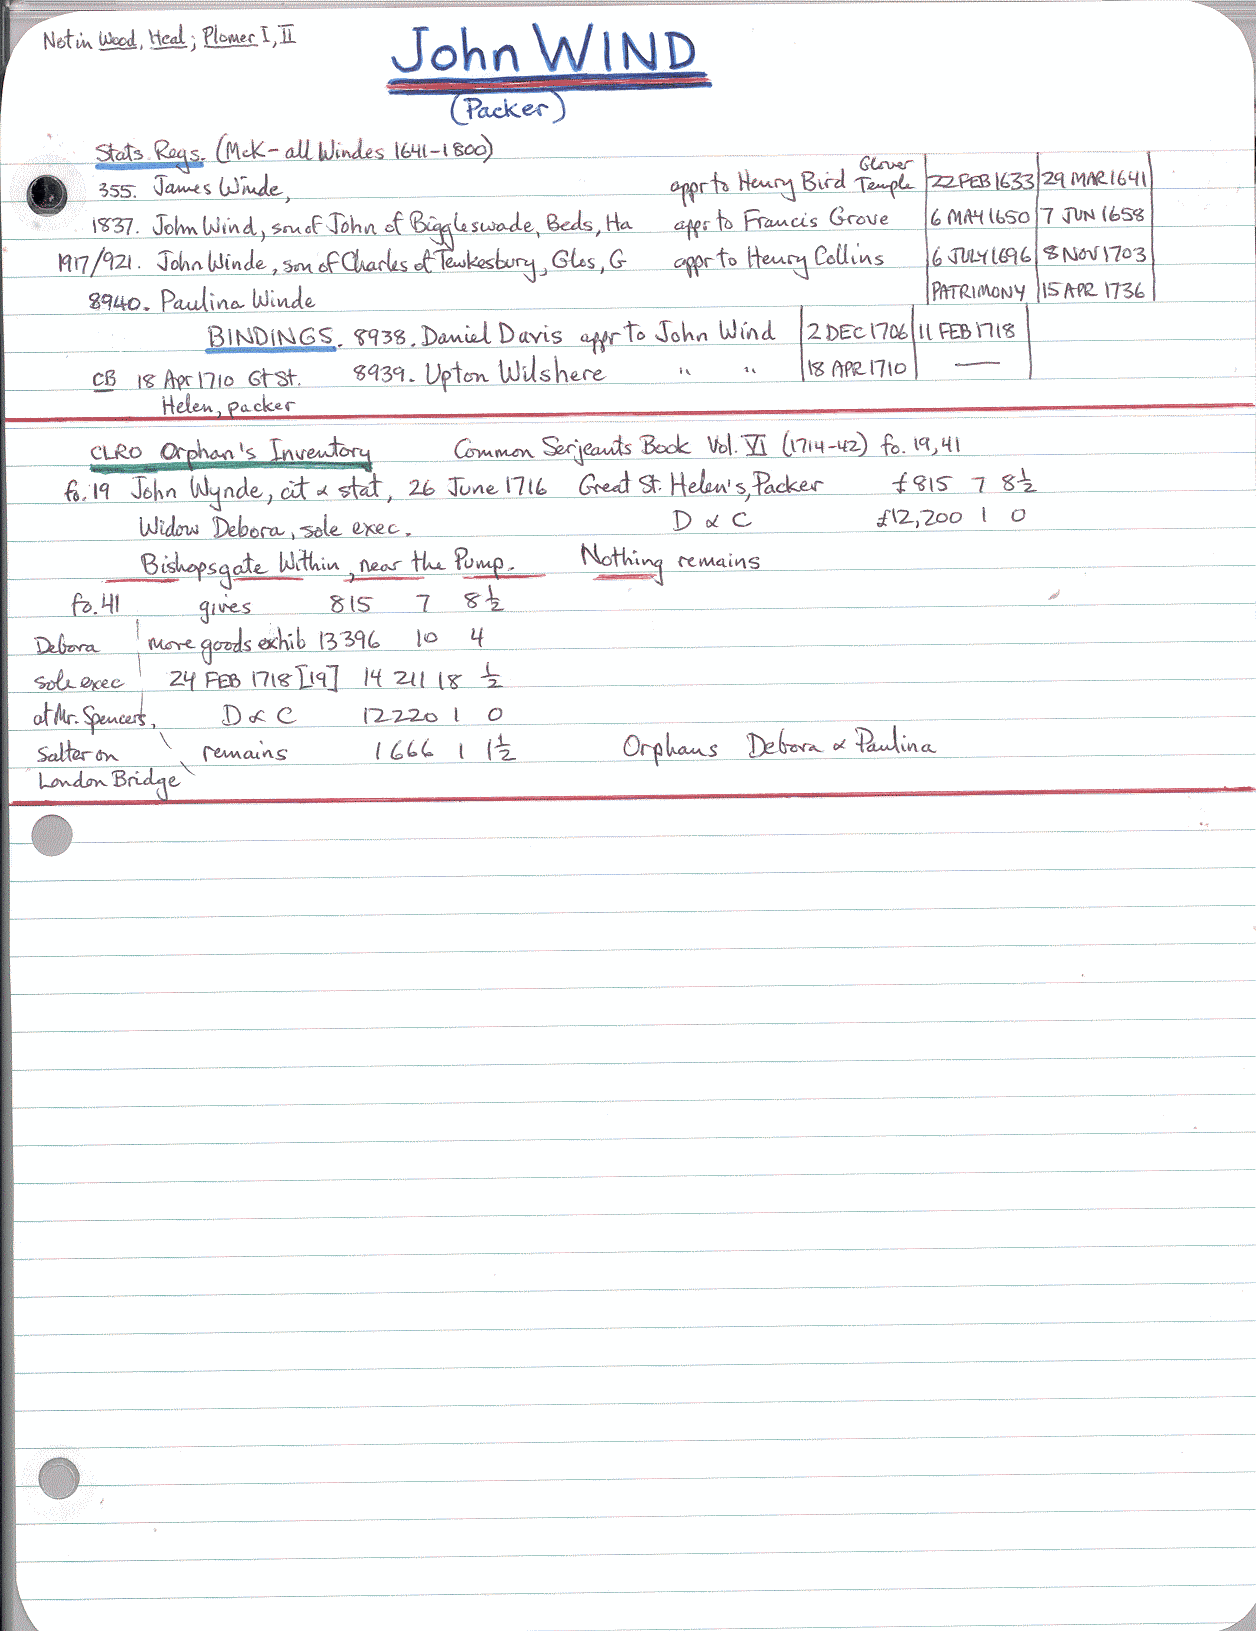 Not in Wood, Heal; Plomer I, II
John WIND
(Packer)
Stats. Regs. (McK - all Windes 1641-1800)
355. James Winde, appr to Henry Bird Glover Temple 22 FEB 1633 29 MAR 1641
1837. John Wind, son of John of Biggleswade, Beds, Ha appr to Francis Grove 6 MAY 1650 7 JUN 1658
1917/921. John Winde, son of Charles of Tewkesbury, Glos, G appr to Henry Collins 6 JULY 1696 8 NOV 1703
8940. Paulina Winde PATRIMONY 15 APR 1736
BINDINGS. 8938. Daniel Davis appr to John Wind 2 DEC 1706 11 FEB 1718
CB 18 Apr 1710 Gt St. 8939. Upton Wilshere " " 18 APR 1710 —
Helen, packer
CLRO Orphan's Inventory Common Serjeants Book Vol. VI (1714-42) fo. 19, 41
fo. 19 John Wynde, cit & stat, 26 June 1716 Great St. Helen's, Packer £815 7 8½
Widow Debora, sole exec. D & C £12,200 1 0
Bishopsgate Within, near the Pump. Nothing remains
fo. 41 gives 815 7 8½
Debora more goods exhib 13 396 10 4
sole exec 24 FEB 1718 [19] 14 211 18 ½
at Mr. Spencers, D & C 12220 1 0
Salter on remains 1666 1 1½ Orphans Debora & Paulina
London Bridge